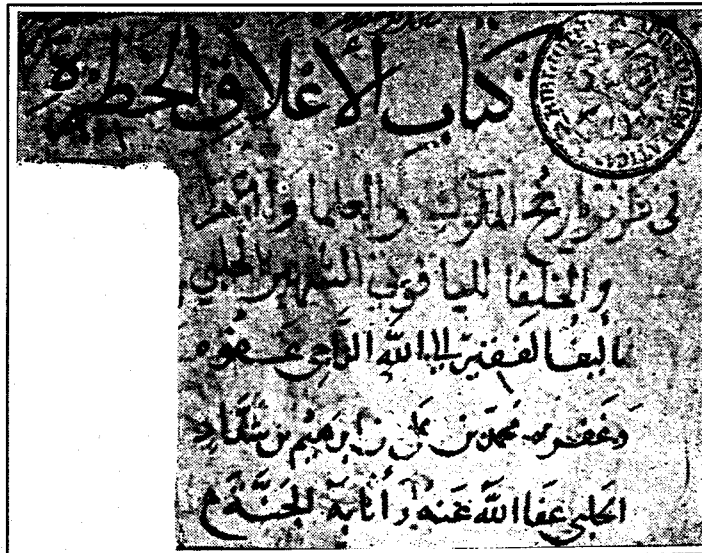 كتاب الأغلاق الخطيرة
في تواريخ الملوك والعلما والأمرا
والخلفا للياقوت الشهير الحلبي
تأليف الفقير إلى الله الراجي عفوه
وغفرنه محمد بن علي بن إبرهيم بن شداد
الحلبي عفا الله عنه وأثابه الجنة